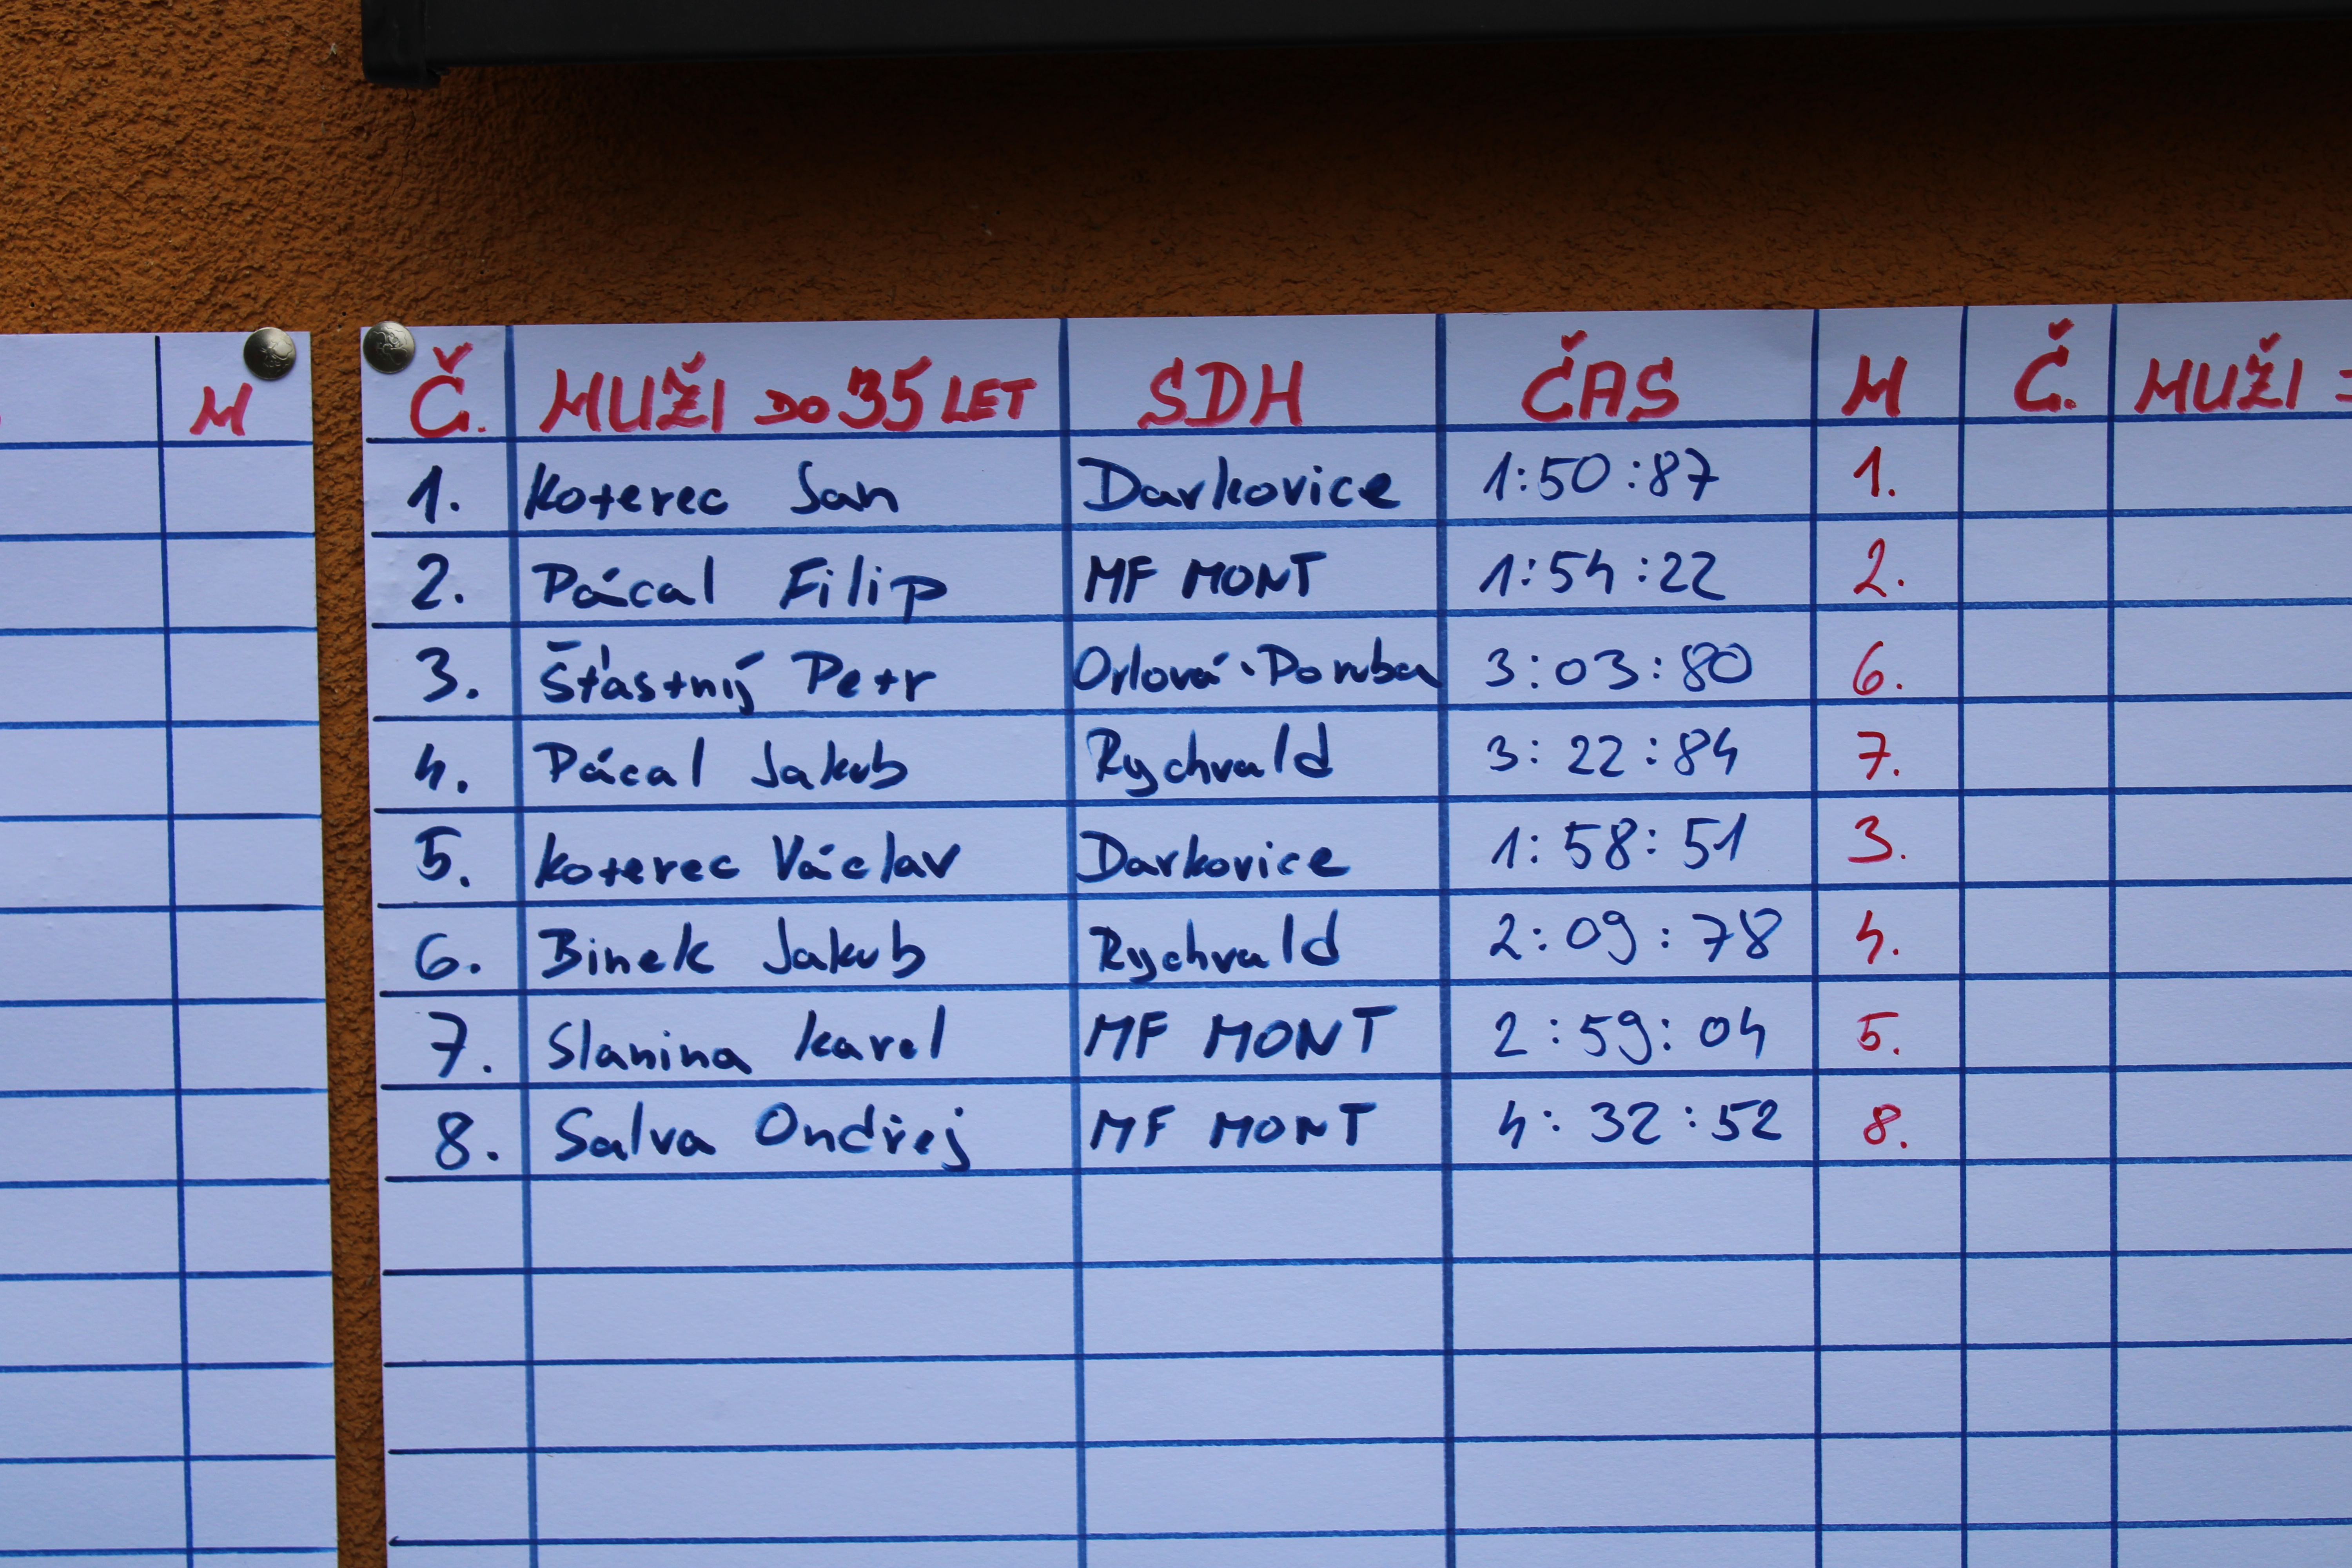 M
Č. MUŽI DO 35 LET SDH ČAS M Č. MUŽI
1. Koterec Jan Darkovice 1:50:87 1.
2. Pácal Filip MF MONT 1:54:22 2.
3. Šťastný Petr Orlová-Poruba 3:03:80 6.
4. Pácal Jakub Rychvald 3:22:84 7.
5. Koterec Václav Darkovice 1:58:51 3.
6. Binek Jakub Rychvald 2:09:78 4.
7. Slanina Karel MF MONT 2:59:04 5.
8. Salva Ondřej MF MONT 4:32:52 8.